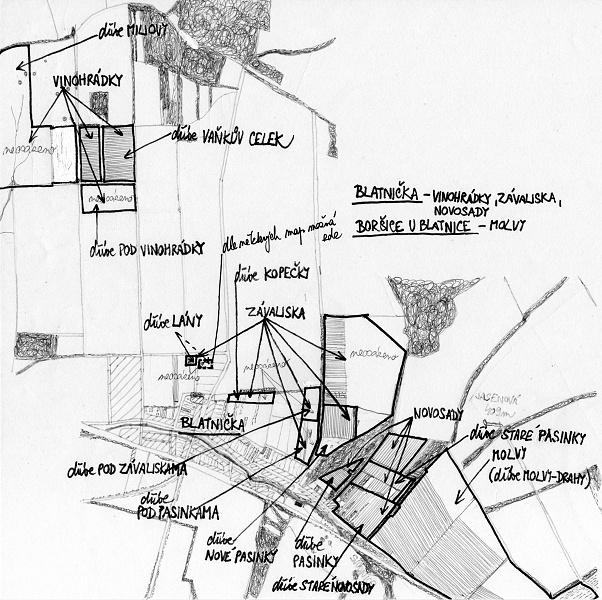 dříve MILIOVY
VINOHRÁDKY
neosázeno
dříve VAŇKŮV CELEK
neosázeno
BLATNIČKA – VINOHRÁDKY, ZÁVALISKA,
NOVOSADY
BORŠICE U BLATNICE – MOLVY
dříve POD VINOHRÁDKY
dle některých map možná
zde
dříve KOPEČKY
ZÁVALISKA
dříve LÁNY
neosázeno
neosázeno
neosázeno
JASENOVÁ
409m
BLATNIČKA
NOVOSADY
dříve STARÉ PASINKY
MOLVY
(dříve MOLVY-DRAHY)
dříve POD ZÁVALISKAMA
dříve
POD PASINKAMA
dříve
NOVÉ PASINKY
dříve
PASINKY
dříve STARÉ NOVOSADY